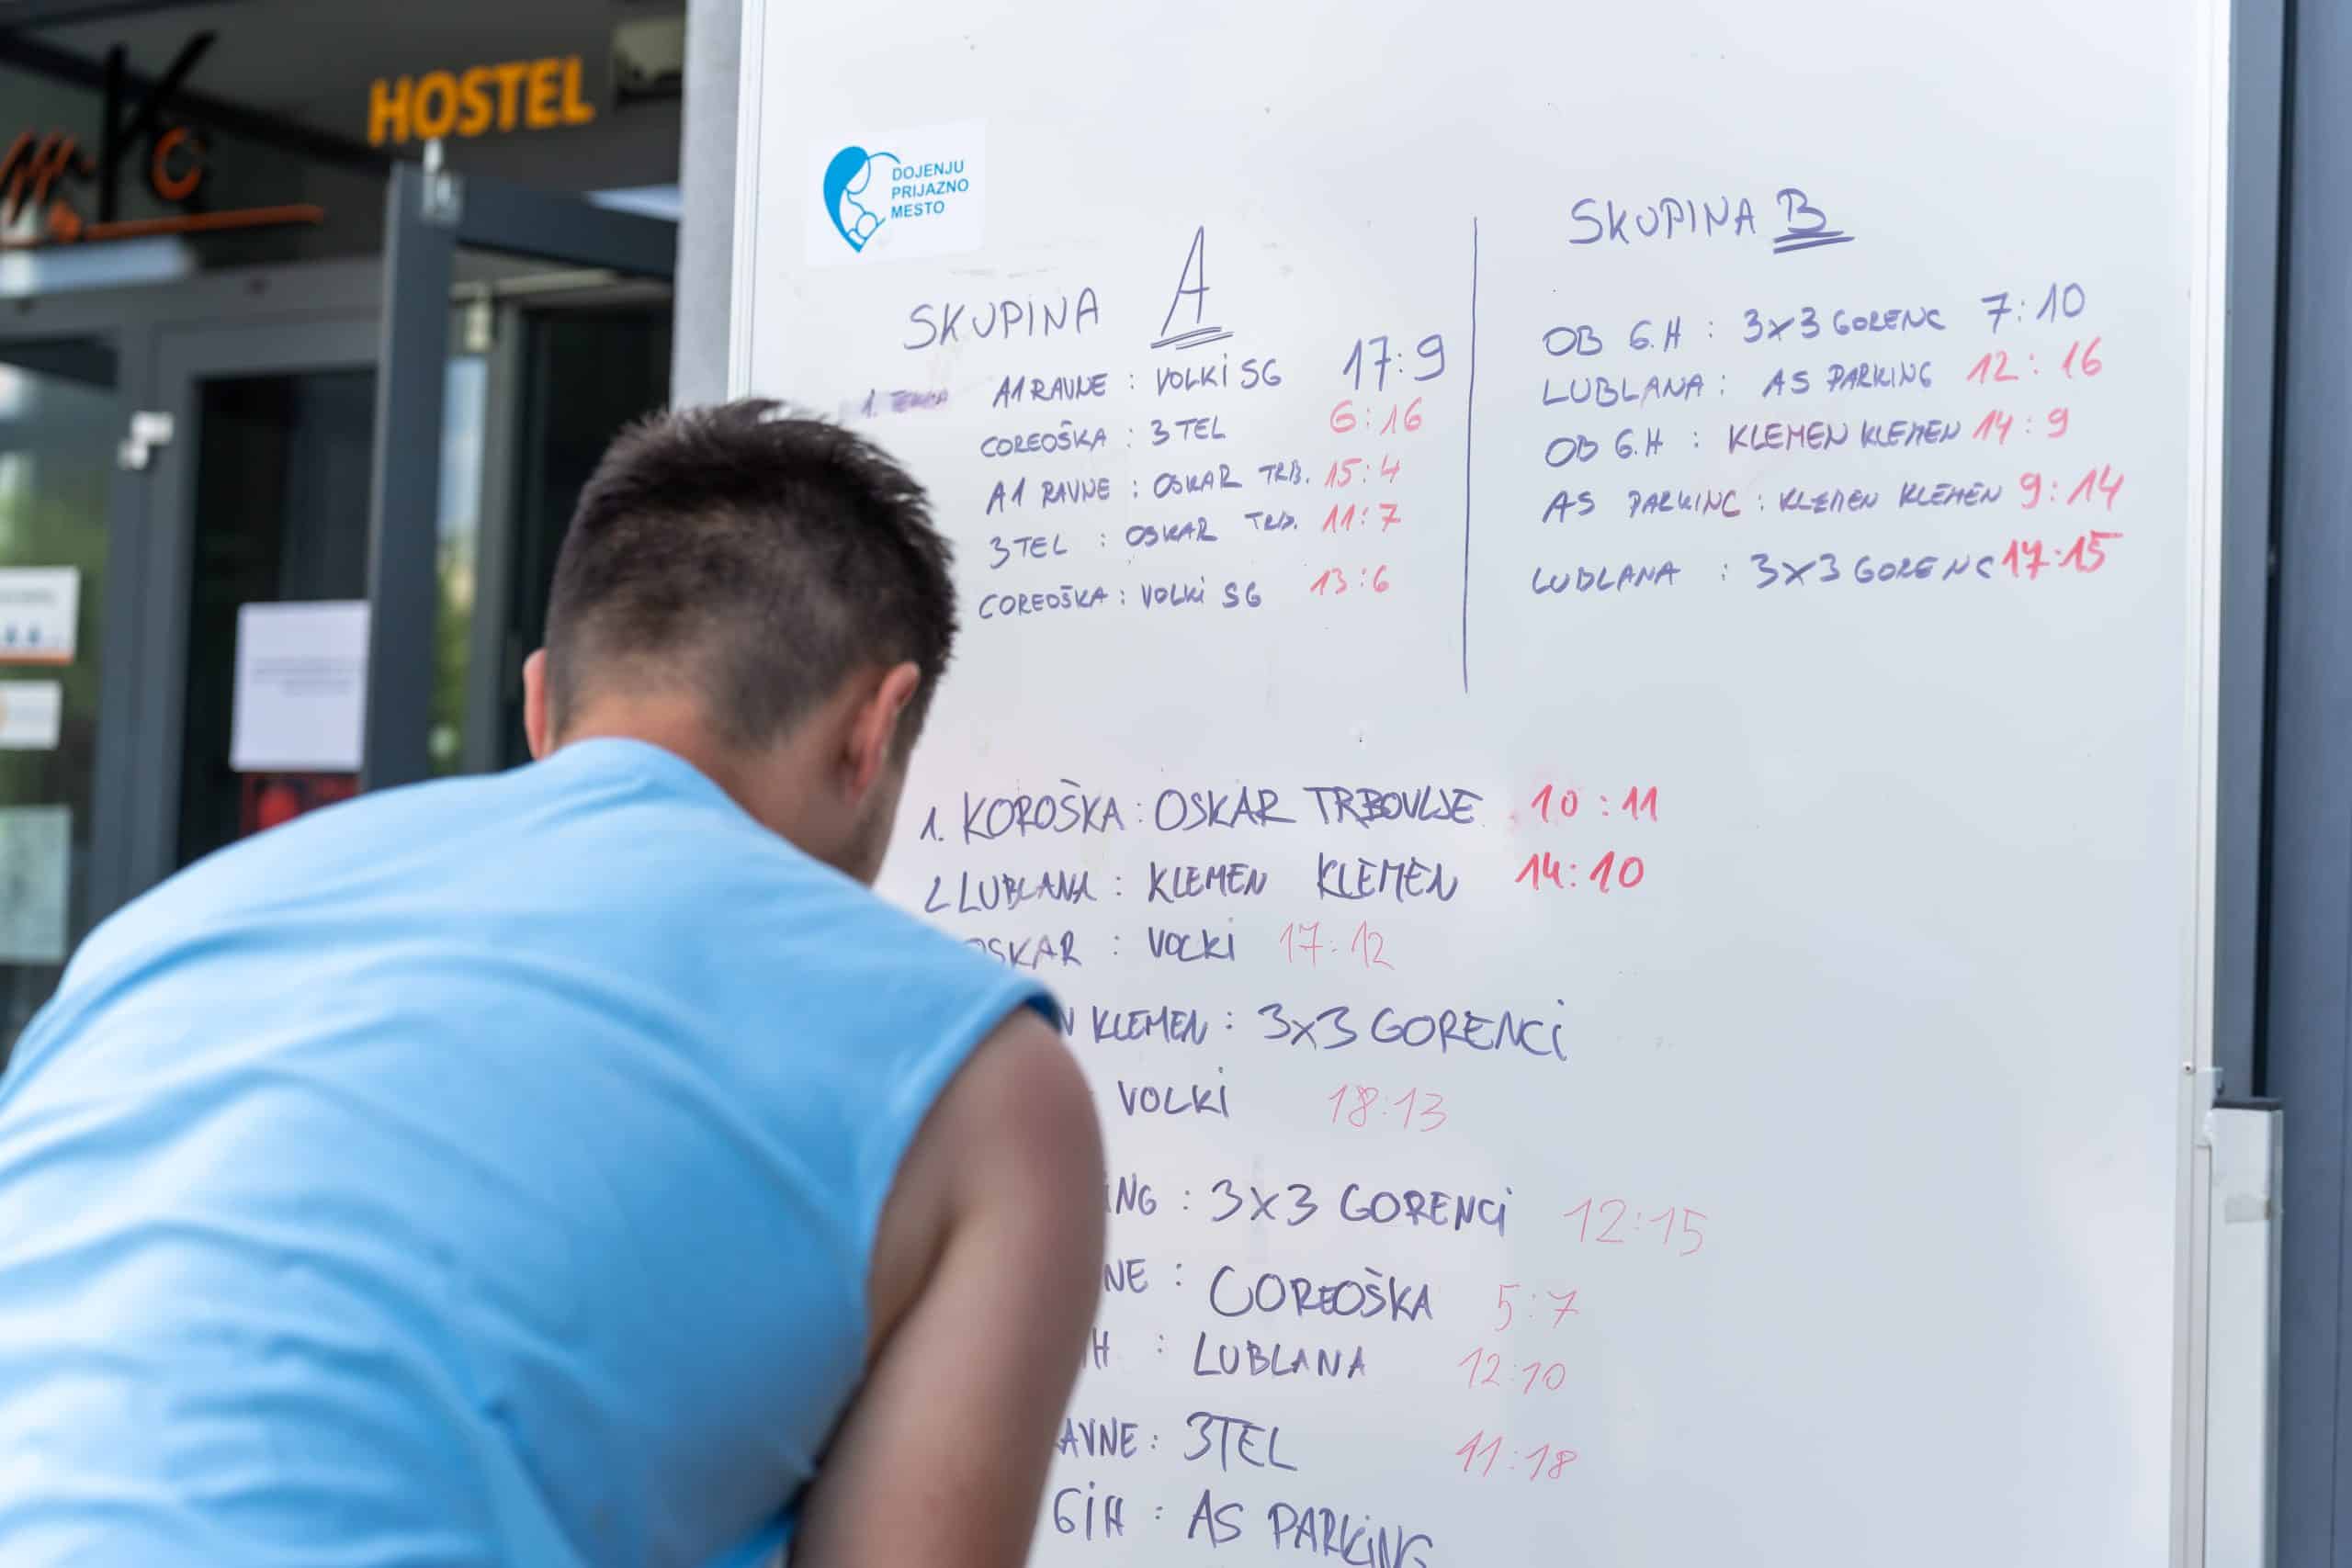 HOSTEL
DOJENJU
PRIJAZNO
MESTO
SKUPINA A
1.
A1 RAVNE : VOLKI SG 17:9
COREOŠKA : 3TEL 6:16
A1 RAVNE : OSKAR TRB. 15:4
3TEL : OSKAR TRB. 11:7
COREOŠKA : VOLKI SG 13:6
SKUPINA B
OB G.H : 3x3 GORENC 7:10
LUBLANA : AS PARKING 12:16
OB G.H : KLEMEN KLEMEN 14:9
AS PARKING : KLEMEN KLEMEN 9:14
LUBLANA : 3x3 GORENC 17:15
1. KOROŠKA : OSKAR TRBOVLJE 10:11
2 LUBLANA : KLEMEN KLEMEN 14:10
OSKAR : VOLKI 17:12
N KLEMEN : 3x3 GORENCI
VOLKI 18:13
ING : 3x3 GORENCI 12:15
NE : COREOŠKA 5:7
H : LUBLANA 12:10
AVNE : 3TEL 11:18
GIH : AS PARKING